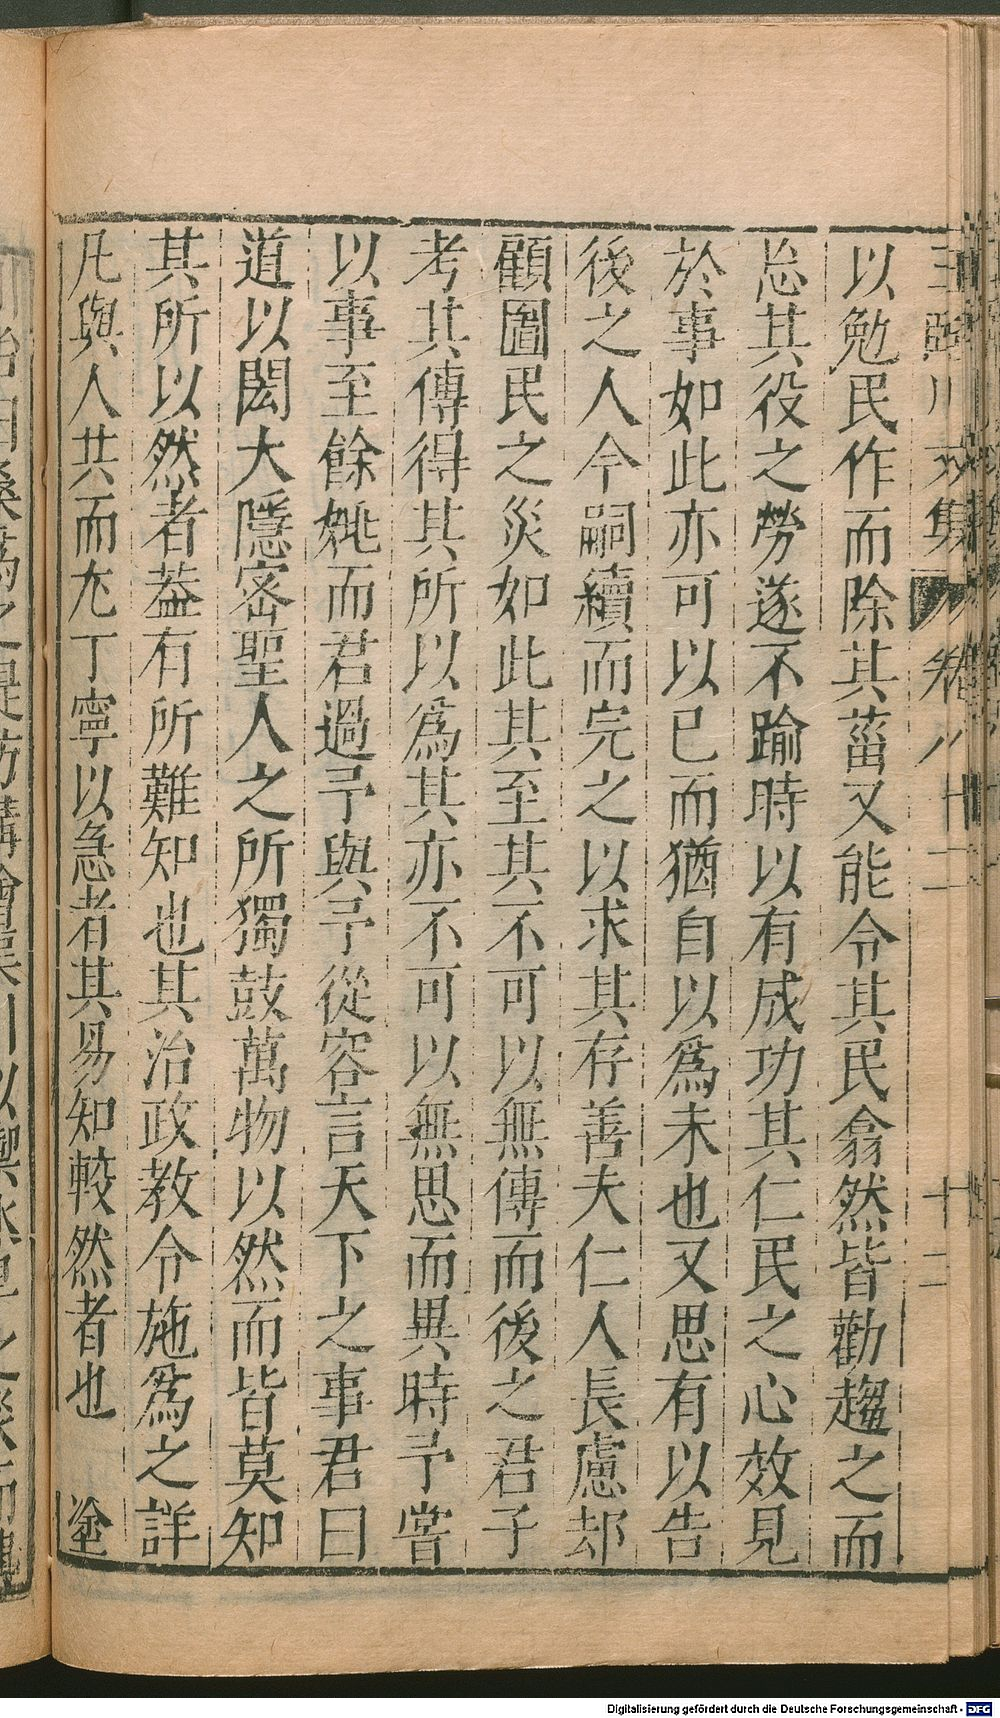 王臨川文集 卷八十二 十二
以勉民作而除其菑又能令其民翕然皆勸趨之而
忘其役之勞遂不踰時以有成功其仁民之心效見
於事如此亦可以已而猶自以爲未也又思有以告
後之人令嗣續而完之以求其存善夫仁人長慮却
顧圖民之災如此其至其不可以無傳而後之君子
考其傳得其所以爲其亦不可以無思而異時予嘗
以事至餘姚而君過予與予從容言天下之事君曰
道以閎大隱密聖人之所獨鼓萬物以然而皆莫知
其所以然者葢有所難知也其治政教令施爲之詳
凡與人共而尤丁寧以急者其易知較然者也 塗
Digitalisierung gefördert durch die Deutsche Forschungsgemeinschaft - DFG